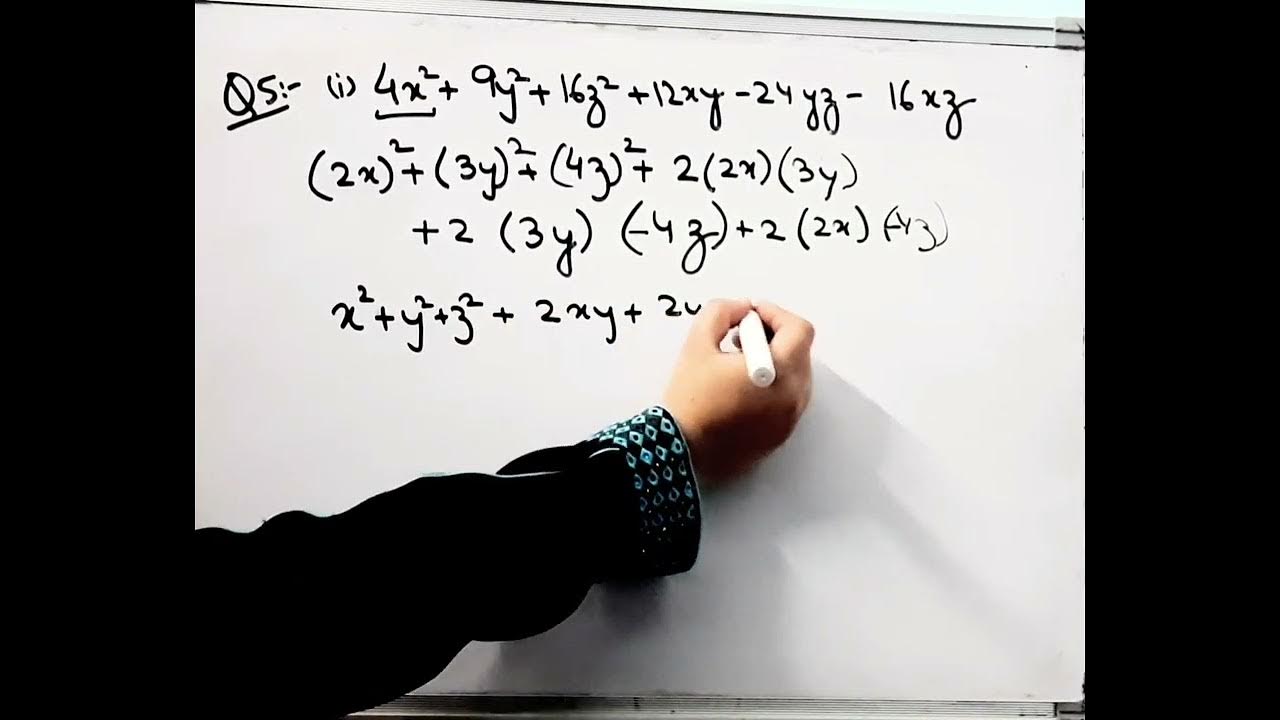 Q5:- (i) 4x² + 9y² + 16z² + 12xy - 24yz - 16xz
(2x)² + (3y)² + (4z)² + 2(2x)(3y)
+ 2 (3y) (-4z) + 2 (2x) (-4z)
x² + y² + z² + 2xy + 2y